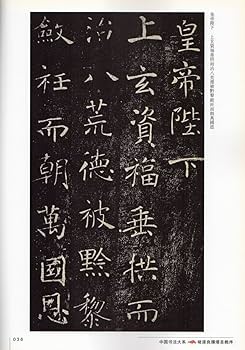 皇帝陛下 上玄資福垂拱而治八荒德被黔黎斂衽而朝萬國恩
皇帝陛下
上玄資福垂拱而
治八荒德被黔黎
斂衽而朝萬國恩
036
中国书法大系
褚遂良雁塔圣教序